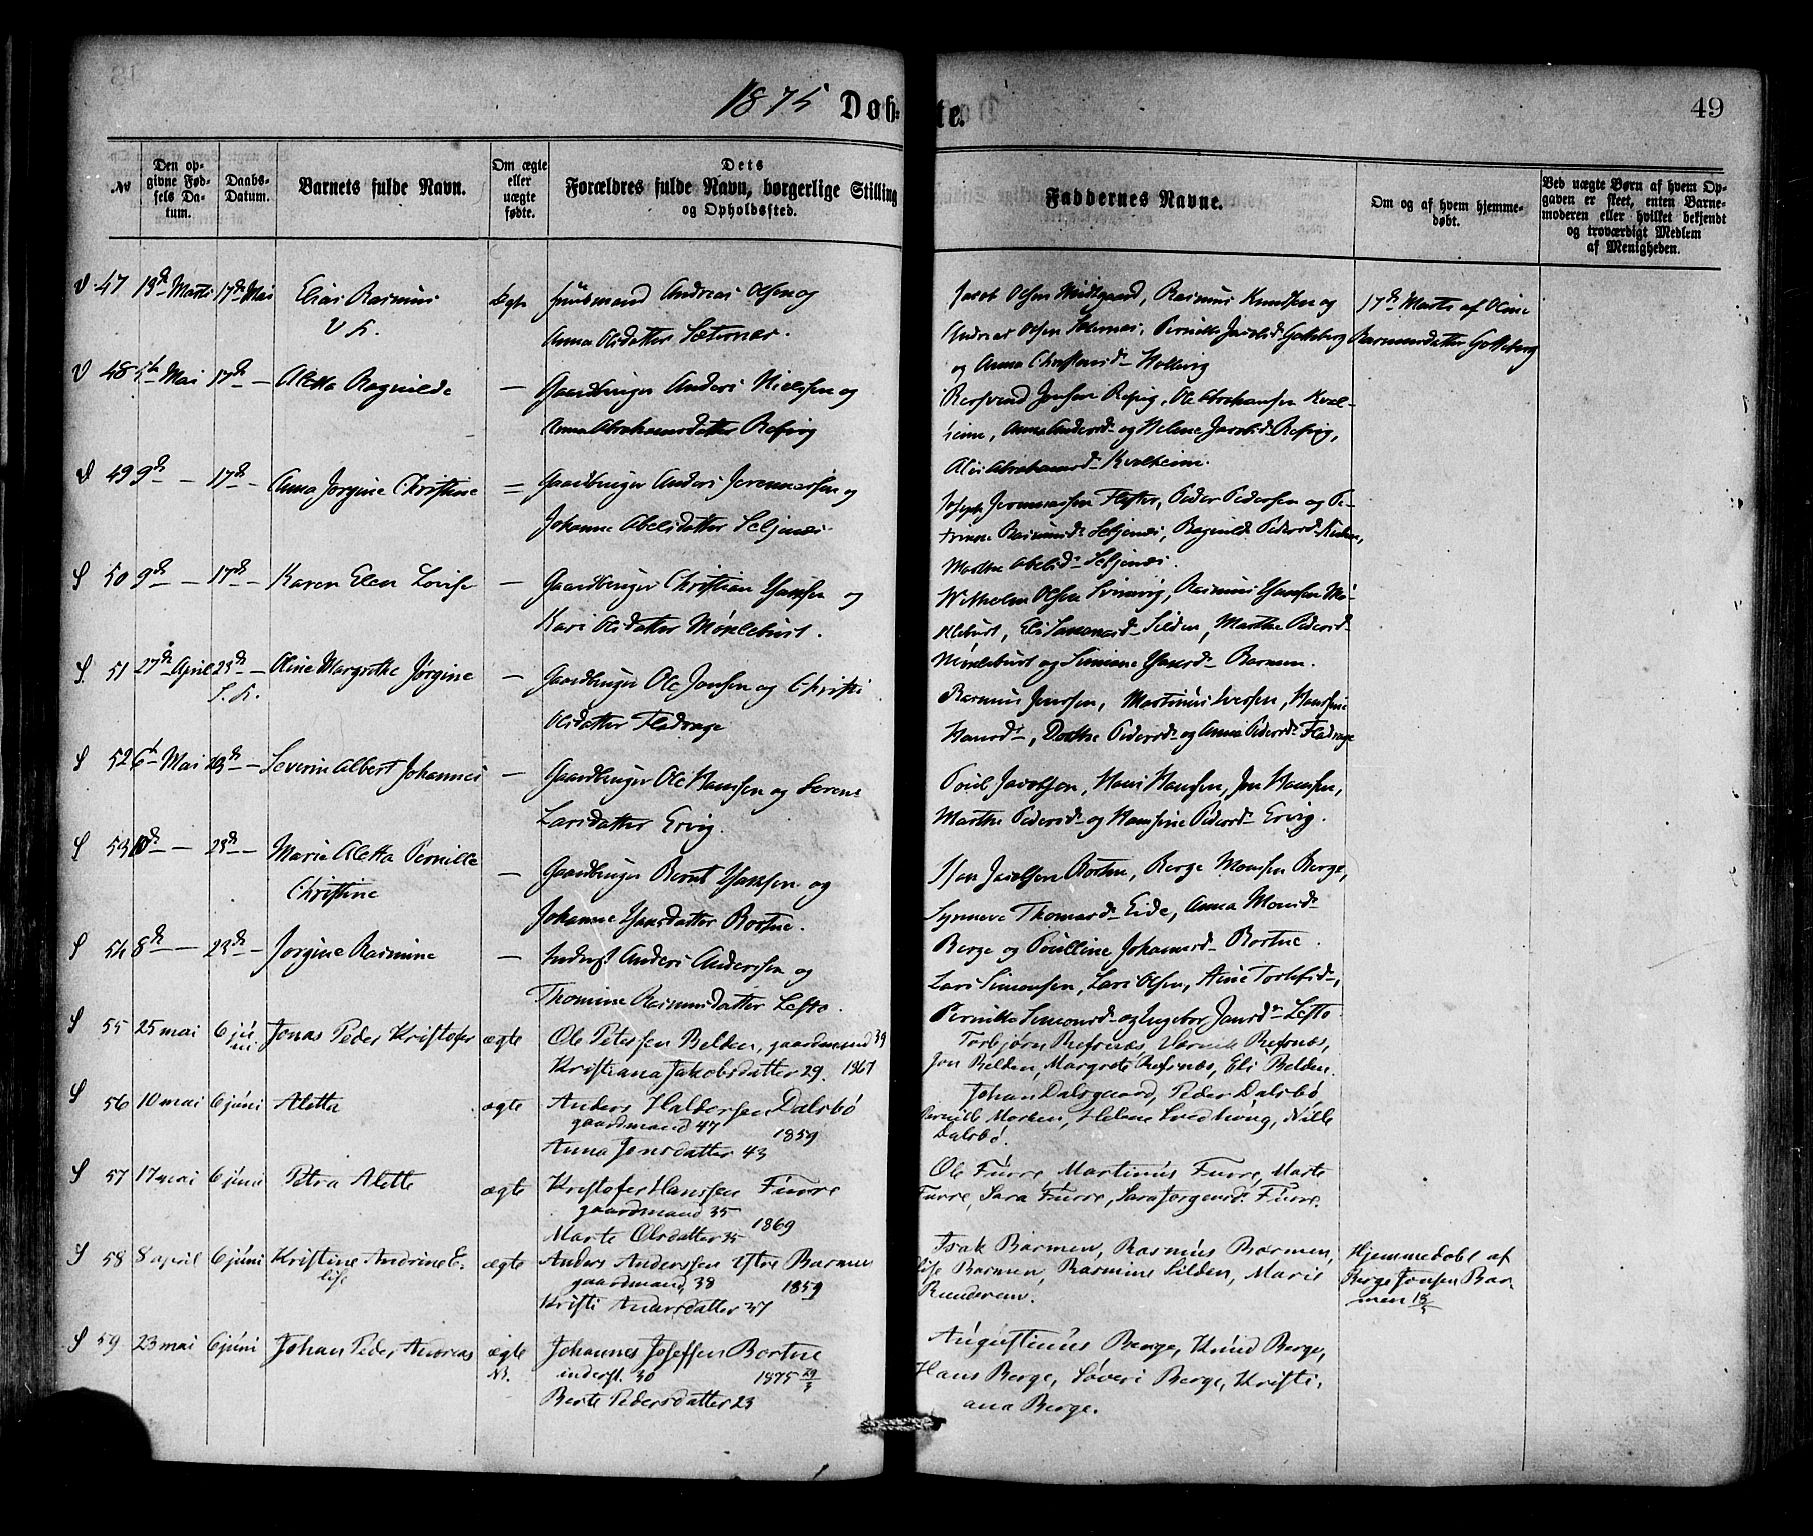 1875 Døbte. 49
No
Den opgivne Fødsels Datum.
Daabs-Datum.
Barnets fulde Navn.
Om ægte eller uægte fødte.
Dets Forældres fulde Navn, borgerlige Stilling og Opholdssted.
Faddernes Navne.
Om og af hvem hjemmedøbt.
Ved uægte Børn af hvem Opgaven er skeet, enten Barnemoderen eller hvilket bekjendt og troværdigt Medlem af Menigheden.
V. 47 13de Marts 17de Mai Elias Rasmus ægte Huusmand Andreas Olsen og
V K. Anna Olsdatter Sæternes.
Jacob Olsen Rasmus Knudsen og
Andreas Olsen Sæternes, Pernille Jacobsd. Gotteberg
og Anna Christensd.
17de Marts af Oline
Rasmusdatter Gotteberg
V 48 5te Mai 17de — Aletta Ragnilde — Gaardbruger Anders Nielsen og
Anna Abrahamsdatter Refvig
Jensen Refvig, Ole Abrahamsen Kval-
heim, Anna Andersd. og Helene Jacobsd. Refvig,
Abrahamsd. Kvalheim.
V 49 9de — 17de — Anna Jørgine Christine = Gaardbruger Anders Jeremiassen og
Johanne Abelsdatter Seljenæs.
Joseph Jeremiassen Peder Pedersen og Pe-
trine Rasmusd. Seljenæs, Ragnilde Pedersd.
Marthe Abelsd. Seljenæs.
S 50 9de — 17de — Karen Elen Lovise — Gaardbruger Christian Hansen og
Kari Olsdatter Møklebust.
Wilhelm Olsen Rasmus Hansen Mø-
klebust, Eli Silden, Marthe Pedersd.
Møklebust og Simine Hansd. Barmen.
S. 51 27de April 23de — Oline Margrethe Jørgine — Gaardbruger Ole Jonsen og Christi
S. K. Olsdatter Fladrage
Rasmus Jonsen, Martinus Iversen, Hansine
Hansd., Dorthe Pedersd. og Anna Pedersd. Fladrage
S 52 6te Mai 23de — Severin Albert Johannes — Gaardbruger Ole Hansen og
Larsdatter Ervig.
Poul Jacobsen, Hans Hansen, Jon Hansen,
Marthe Pedersd. og Hansine Pedersd. Ervig.
S 53 10de — 23de — Marie Aletta Pernille
Christine — Gaardbruger Bernt Hansen og
Johanne Hansdatter Bortne.
Jacobsen Bortne, Berge Monsen Berge,
Synneve Thomasd. Eide, Anna Monsd.
Berge og Poulline Johannesd. Bortne.
S 54 8de — 23de — Jørgine Rasmine — Inderst Anders Andersen og
Thomine Rasmusdatter Lefto.
Lars Simonsen, Lars Olsen,
Pernille Simonsd. og Ingebor Jansd. Lefto
S 55 25 mai 6 juni Jonas Peder Kristofer ægte Ole Petersen Belden, gaardmand 39
Kristiana Jakobsdatter 29. 1867
Torbjørn Refsnæs, Refsnæs,
Jon Belden, Margrete Refsnæs, Eli Belden.
S 56 10 mai 6 júni Aletta ægte Anders Haldorsen Dalsbø
gaardmand 47 1859
Anna Jonsdatter 43
Johan Dalsgaard, Peder Dalsbø
Pernille Morken, Helene Nille
Dalsbø.
S 57 17 mai 6 júni Petra Alette ægte Kristofer Hanssen Fúrre
gaardmand 35 1869
Marte Olsdatter 35
Ole Fúrre Martinús Fúrre, Marte
Fúrre, Sara Fúrre, Sara Jørgensd. Fúrre.
S 58 8 april 6 júni Kristine Andrine E-
lise ægte Anders Anderssen Barmen
gaardmand, 38 1859
Kristi Andersdatter 37
Isak Barmen, Rasmús Barmen,
Elise Barmen, Rasmine Silden, Marie
Runderem.
Hjemmedøbt af
Berge Jonsen Bar-
men
S 59 23 mai 6 júni Johan Peder Andreas ægte Johannes Joseffsen Bortne
N. inderst. 30 1875 29/3
Berte Pedersdatter 23
Augústinús Berge, Knúd Berge,
Hans Berge, Søveri Berge, Kristi-
ana Berge.